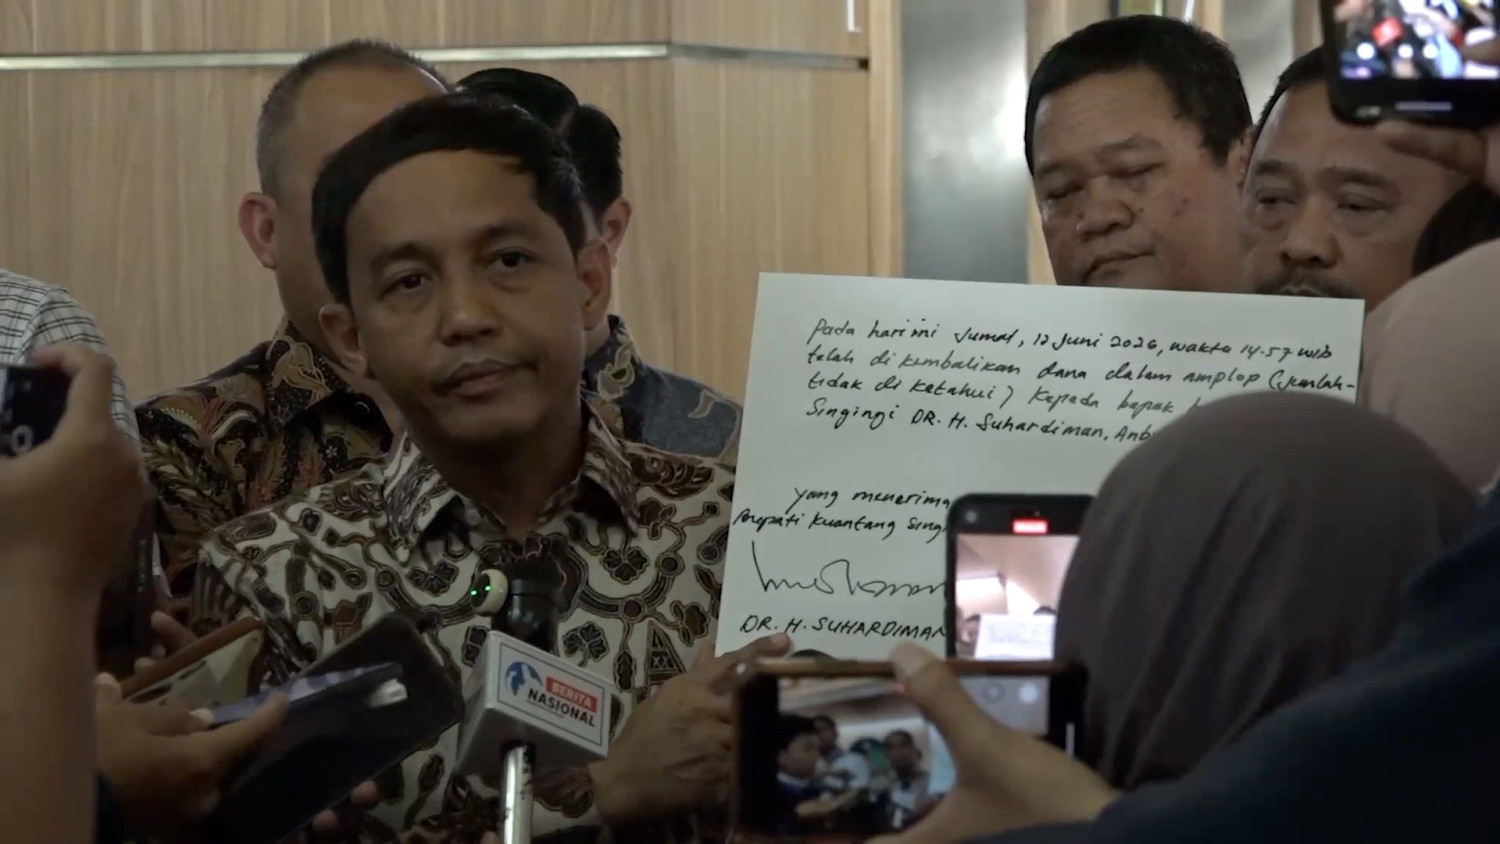 Pada hari ini Jumat, 12 Juni 2026, waktu 14.57 wib
telah di kembalikan dana dalam amplop (Jumlah-
tidak di ketahui) kepada bapak
Singingi DR. H. Suhardiman, Amb
yang menerima
Kuantang Sing
DR. H. SUHARDIMAN
BERITA
NASIONAL